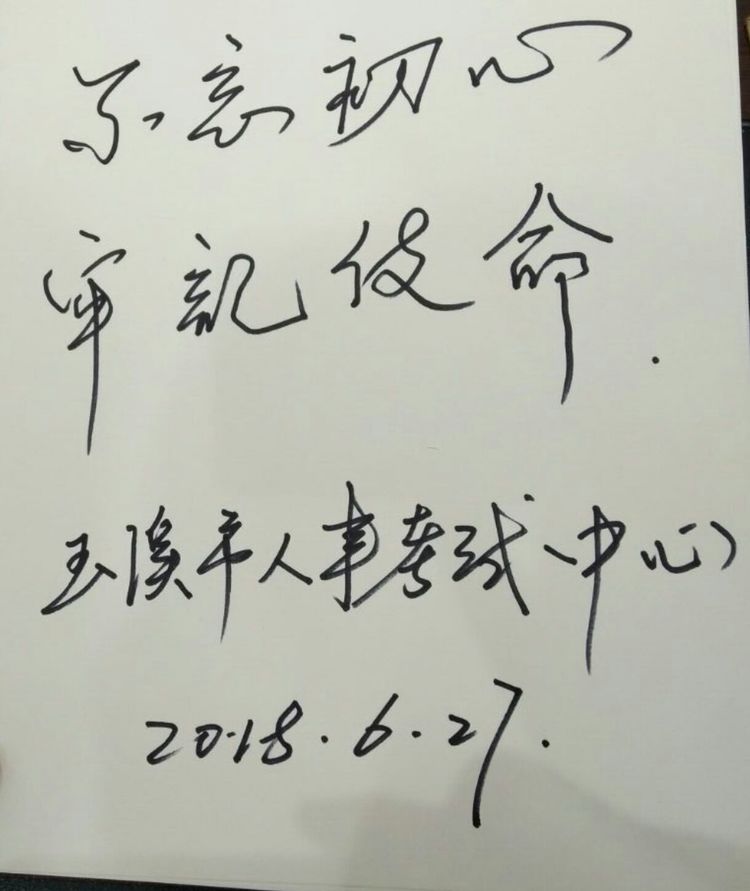 不忘初心
牢记使命.
玉溪市人事考试中心
2018.6.27.